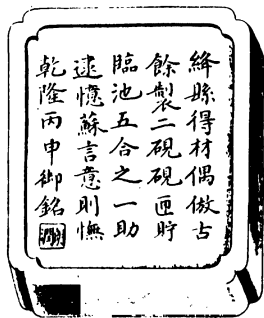 絳縣得材偶倣古
餘製二硯硯匣貯
臨池五合之一助
逮憶蘇言意則憮
乾隆丙申御銘